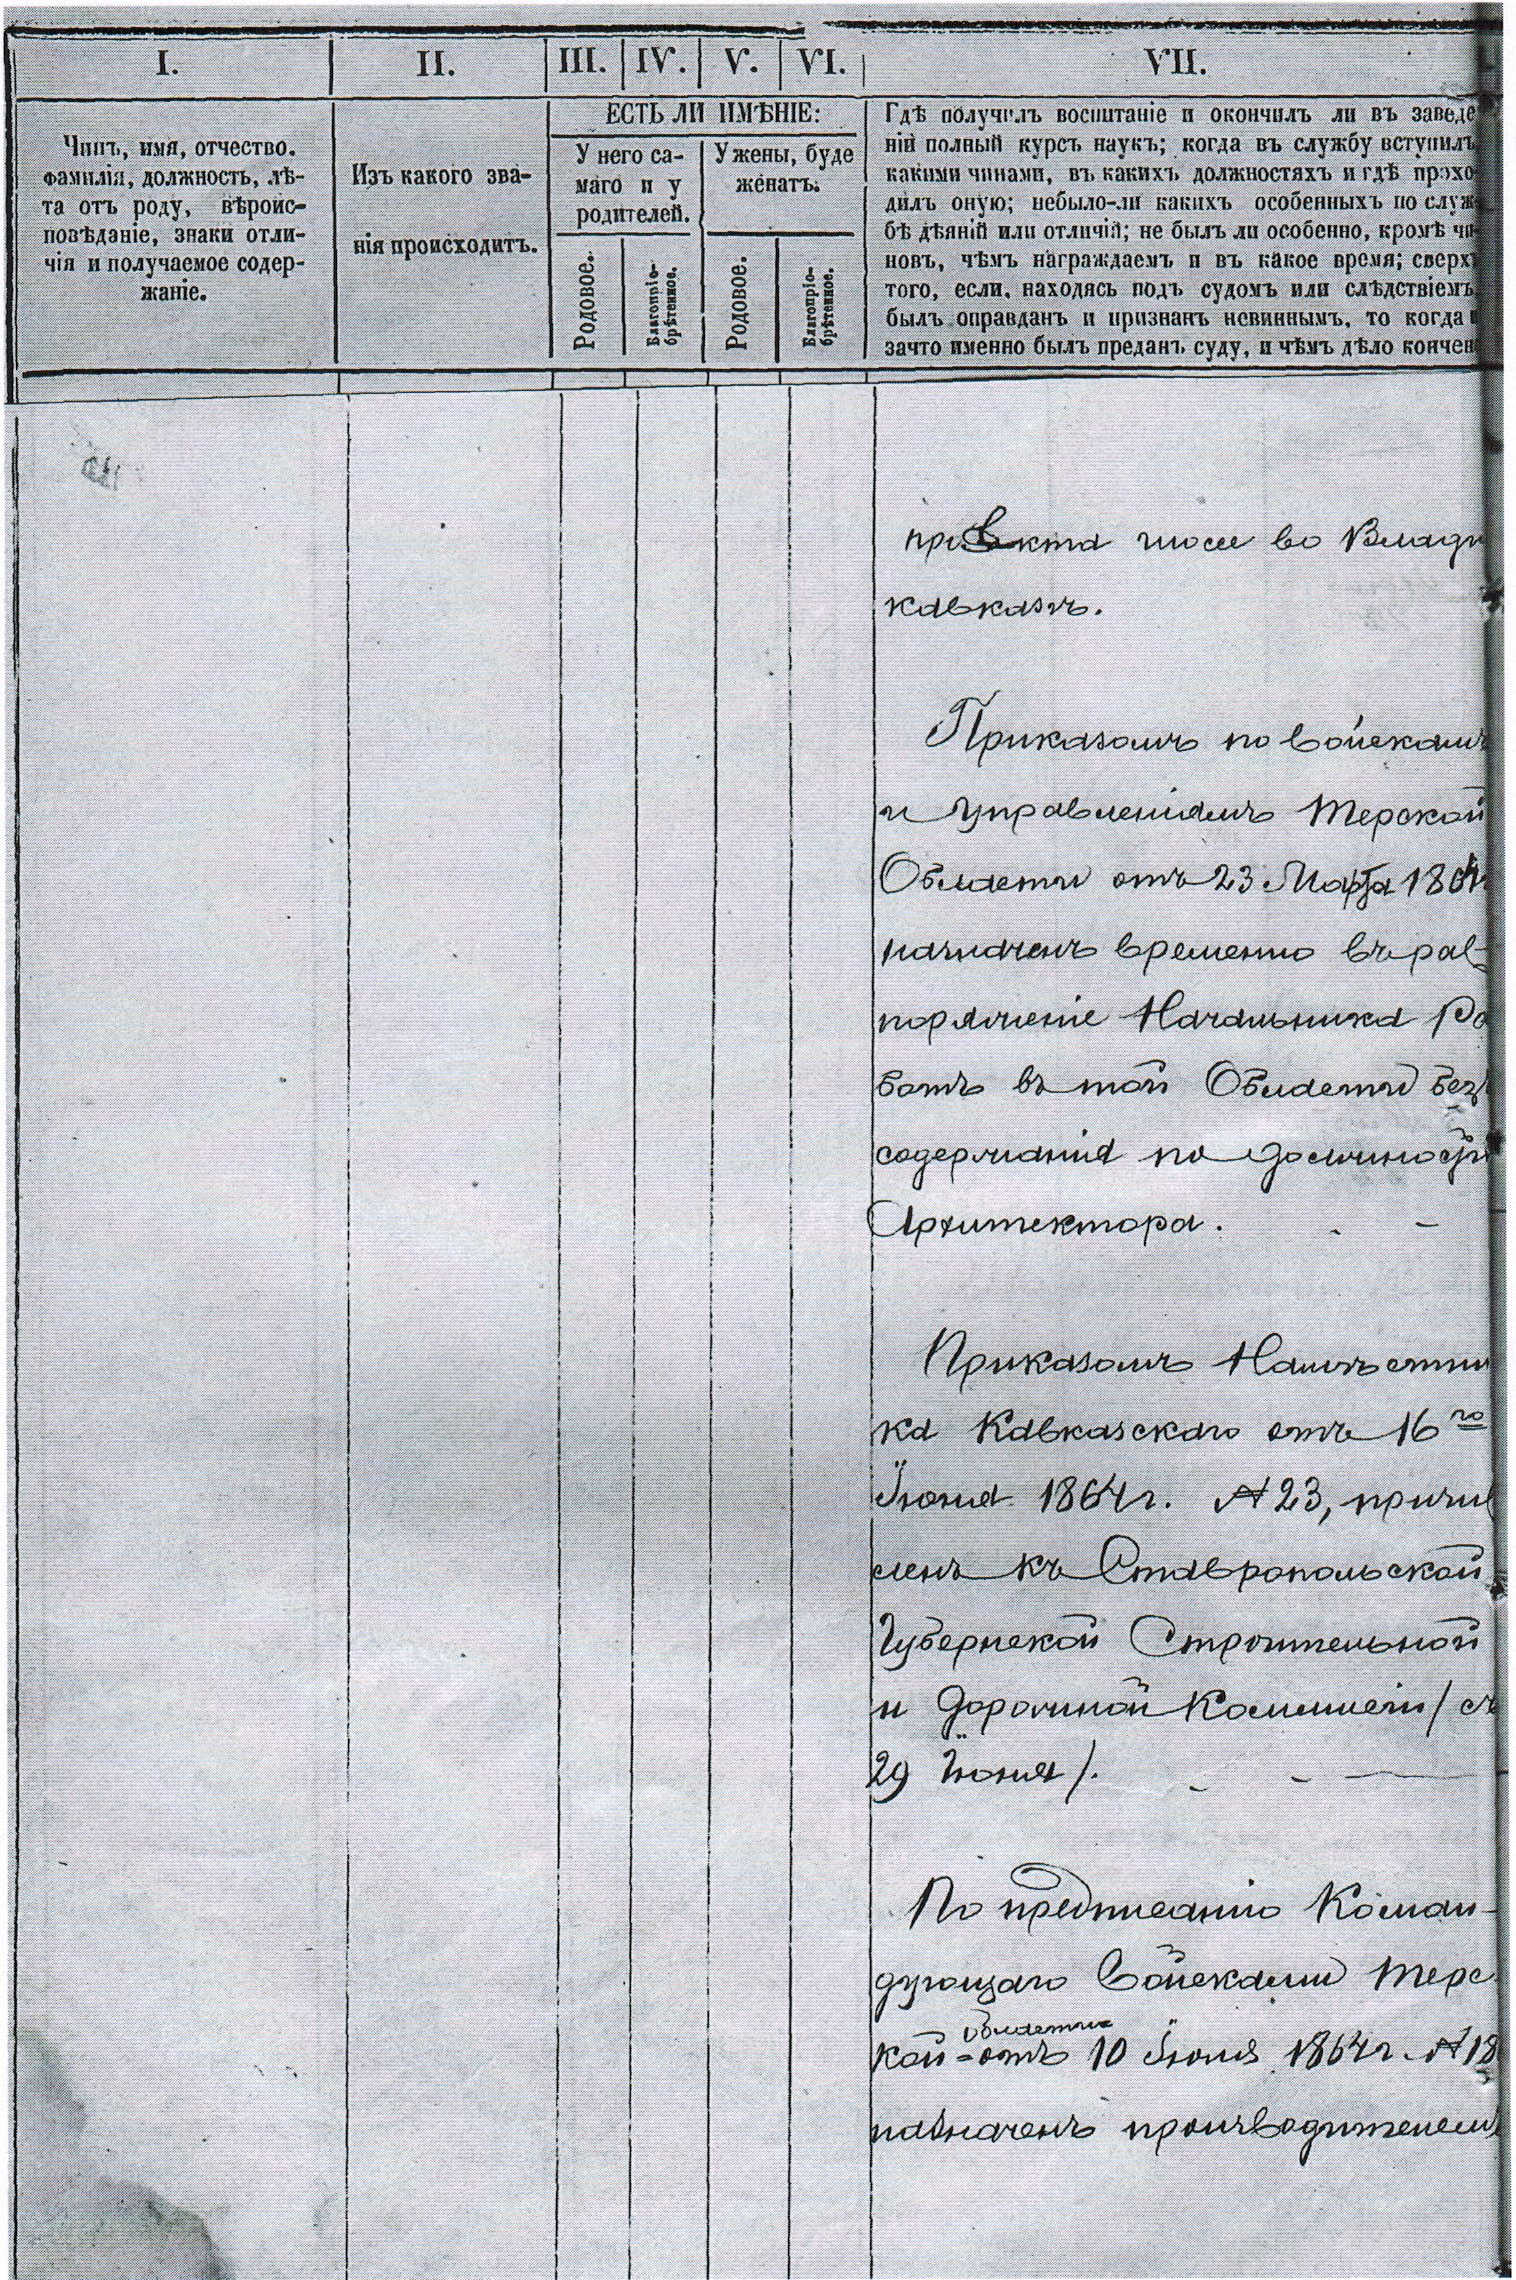 I.
II.
III.
IV.
V.
VI.
VII.
Чинъ, имя, отчество.
фамилія, должность, лѣ-
та отъ роду, вѣроис-
повѣданіе, знаки отли-
чія и получаемое содер-
жаніе.
Изъ какого зва-
нія происходитъ.
ЕСТЬ ЛИ ИМѢНІЕ:
У него са-
маго и у
родителей.
У жены, буде
женатъ.
Родовое.
Благопріо-
брѣтенное.
Родовое.
Благопріо-
брѣтенное.
Гдѣ получилъ воспитаніе и окончилъ ли въ заведе
ній полный курсъ наукъ; когда въ службу вступилъ
какими чинами, въ какихъ должностяхъ и гдѣ прохо
дилъ оную; небыло-ли какихъ особенныхъ по служ
бѣ дѣяній или отличій; не былъ ли особенно, кромѣ чи
новъ, чѣмъ награждаемъ и въ какое время; сверхъ
того, если, находясь подъ судомъ или слѣдствіемъ
былъ оправданъ и признанъ невиннымъ, то когда и
зачто именно былъ преданъ суду, и чѣмъ дѣло кончен
проэкта шоссе во Влади
кавказѣ.
Приказомъ по войскамъ
и управленіямъ Терской
Области отъ 23 Марта 1864
назначенъ временно въ рас
поряженіе Начальника Ра
ботъ въ той Области безъ
содержанія по должности
Архитектора.
Приказомъ Намѣстни
ка Кавказскаго отъ 16го
Іюня 1864 г. № 23, причи
сленъ къ Ставропольской
Губернской Строительной
и Дорожной Коммисіи / съ
29 Іюня /.
По предписанію Коман-
дующаго Войсками Терс
кой области отъ 10 Іюля 1864 г. № 18
назначенъ производителемъ